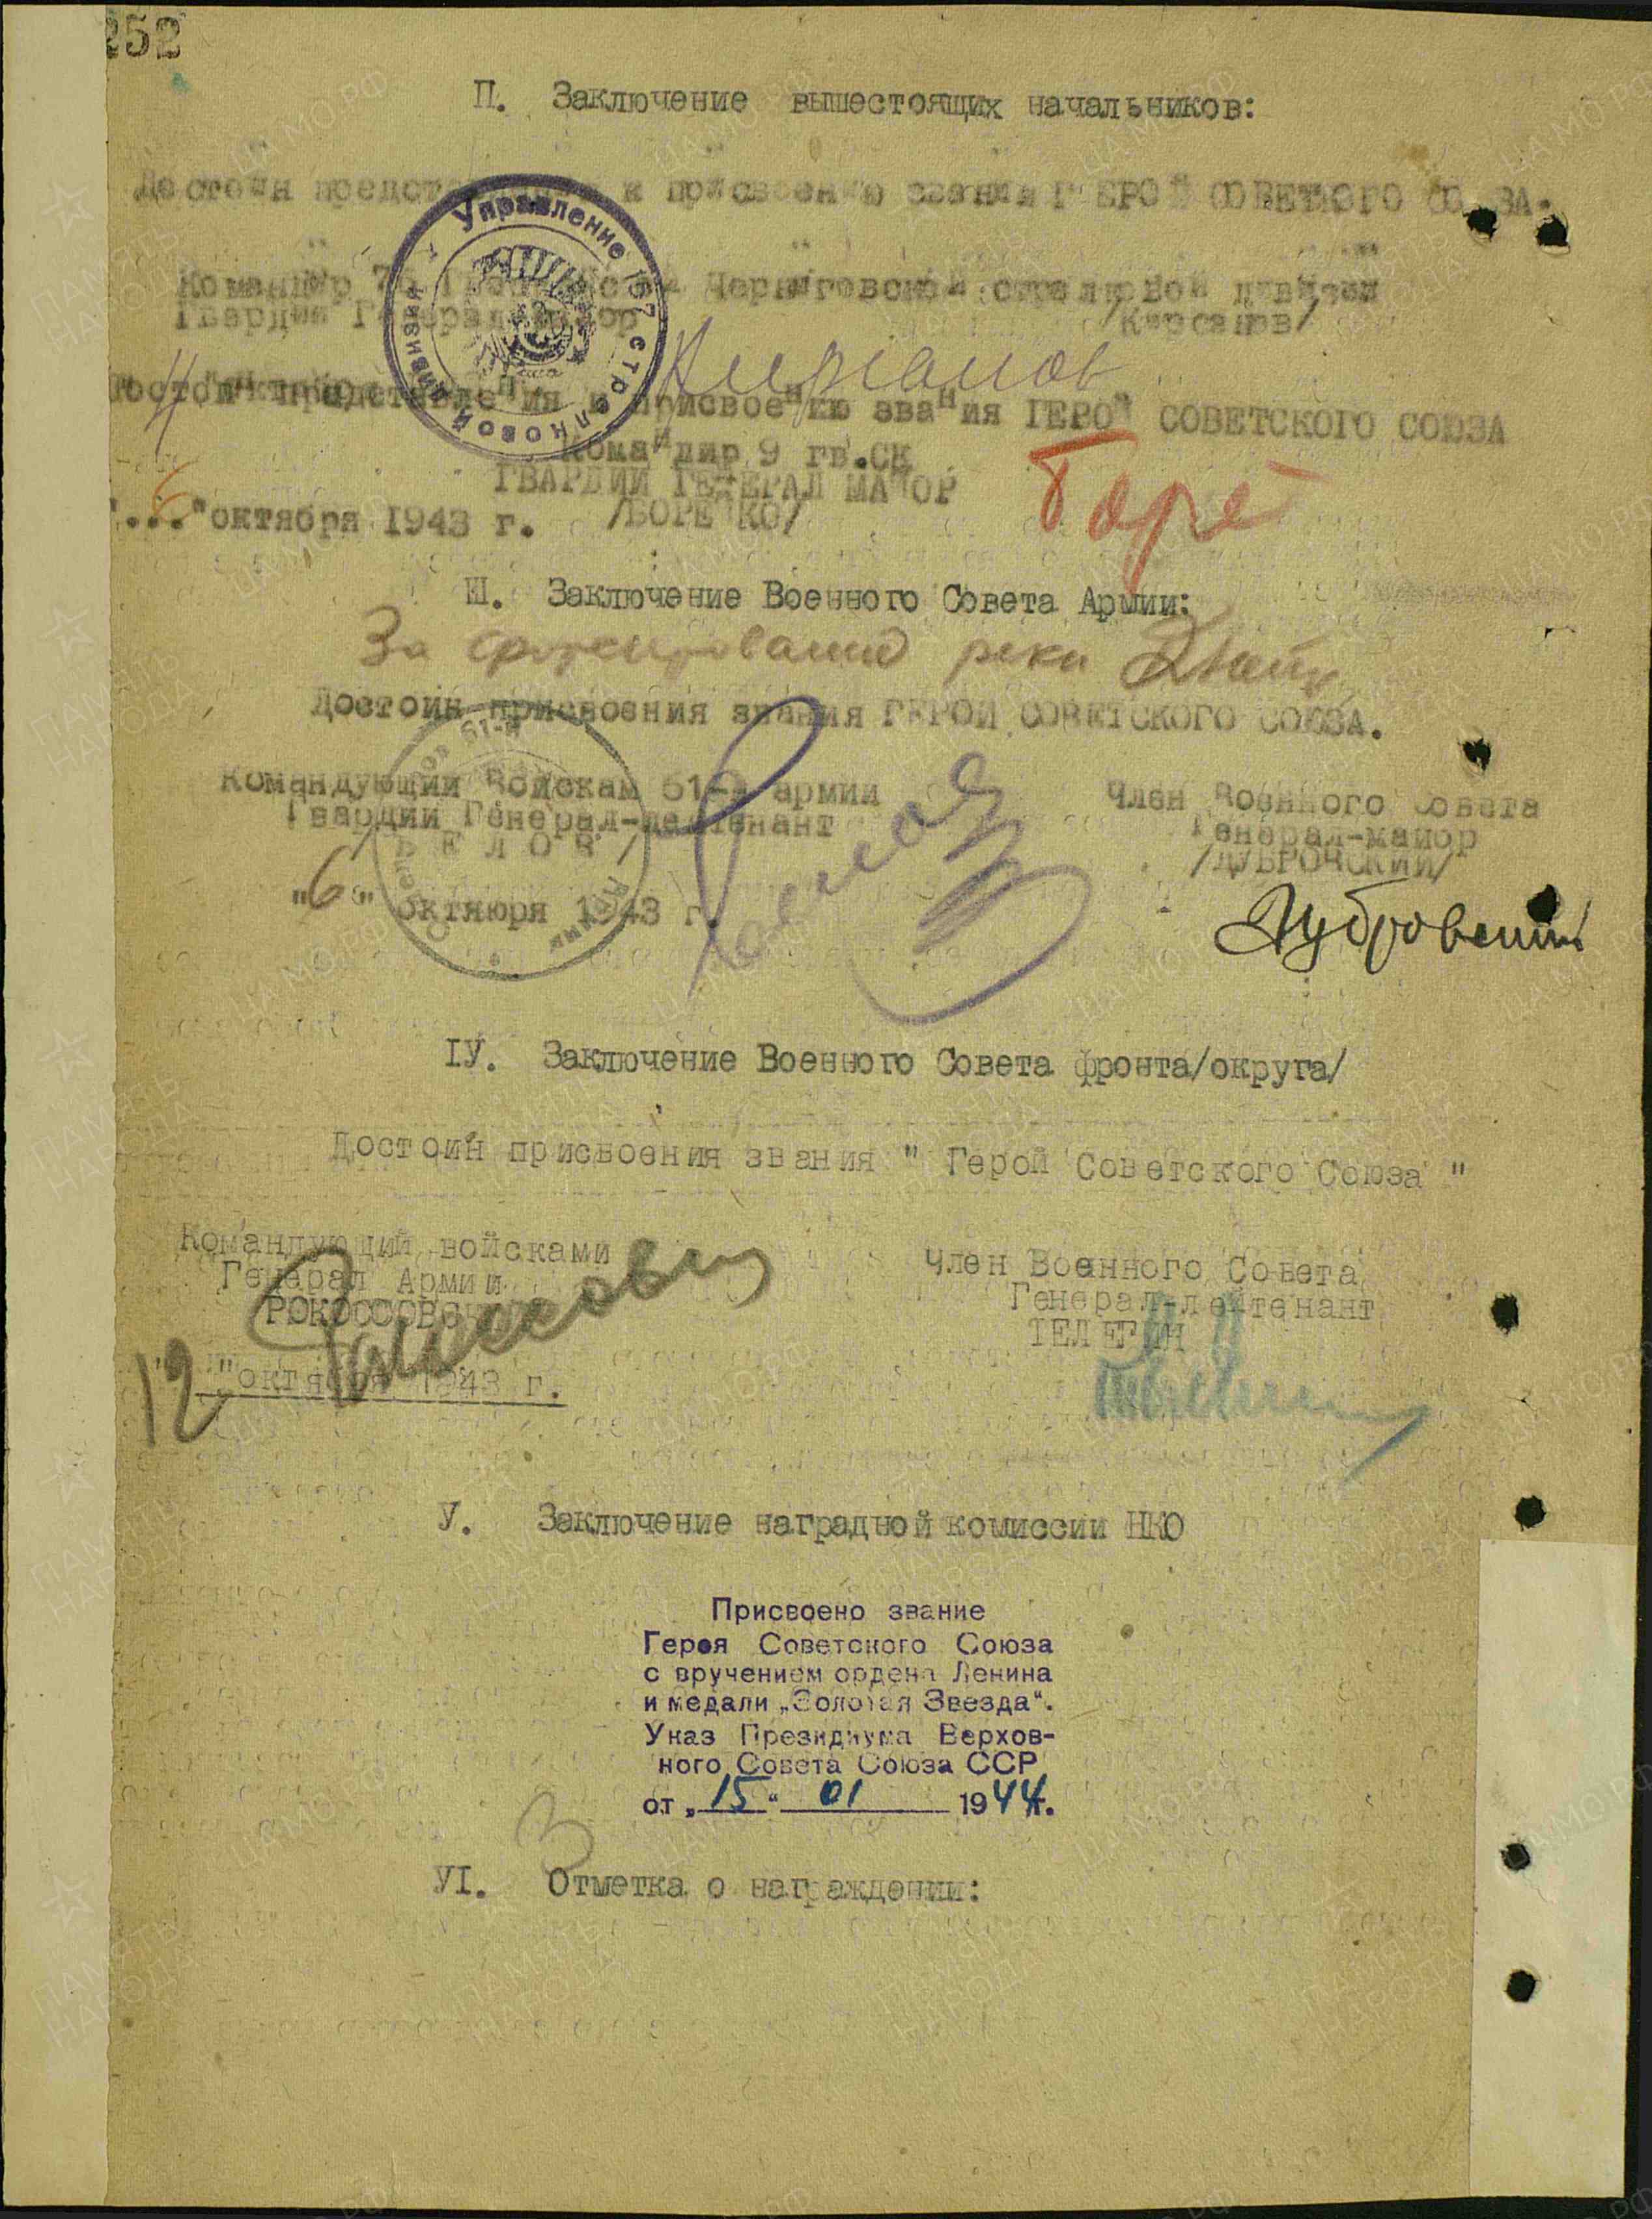 252
П. Заключение вышестоящих начальников:
Достоин к присвоению звания ГЕРОЙ СОВЕТСКОГО СОЮЗА.
Командир Черниговской стрелковой дивизии
Гвардии Генерал-майор /Кирсанов/
Кирсанов
Управление стрелковой дивизии
Достоин представления к присвоению звания ГЕРОЙ СОВЕТСКОГО СОЮЗА
Командир 9 гв.СК
ГВАРДИИ ГЕНЕРАЛ МАЙОР
/БОРЕЙКО/
"6" октября 1943 г.
Ш. Заключение Военного Совета Армии:
За форсирование реки Днепр
Достоин присвоения звания ГЕРОЙ СОВЕТСКОГО СОЮЗА.
Командующий Войскам 61-й армии
Гвардии Генерал-лейтенант
/БЕЛОВ/
"6" октября 1943 г.
Член Военного Совета
Генерал-майор
/ДУБРОВСКИЙ/
Дубровский
IУ. Заключение Военного Совета фронта/округа/
Достоин присвоения звания " Герой Советского Союза "
Командующий войсками
Генерал Армии
РОКОССОВСКИЙ
Рокоссовский
12 "октября 1943 г.
Член Военного Совета
Генерал-лейтенант
ТЕЛЕГИН
У. Заключение наградной комиссии НКО
Присвоено звание
Героя Советского Союза
с вручением ордена Ленина
и медали „Золотая Звезда“.
Указ Президиума Верхов-
ного Совета Союза ССР
от „15“ 01 1944г.
3
УI. Отметка о награждении:
ПАМЯТЬ НАРОДА
ЦАМО.РФ